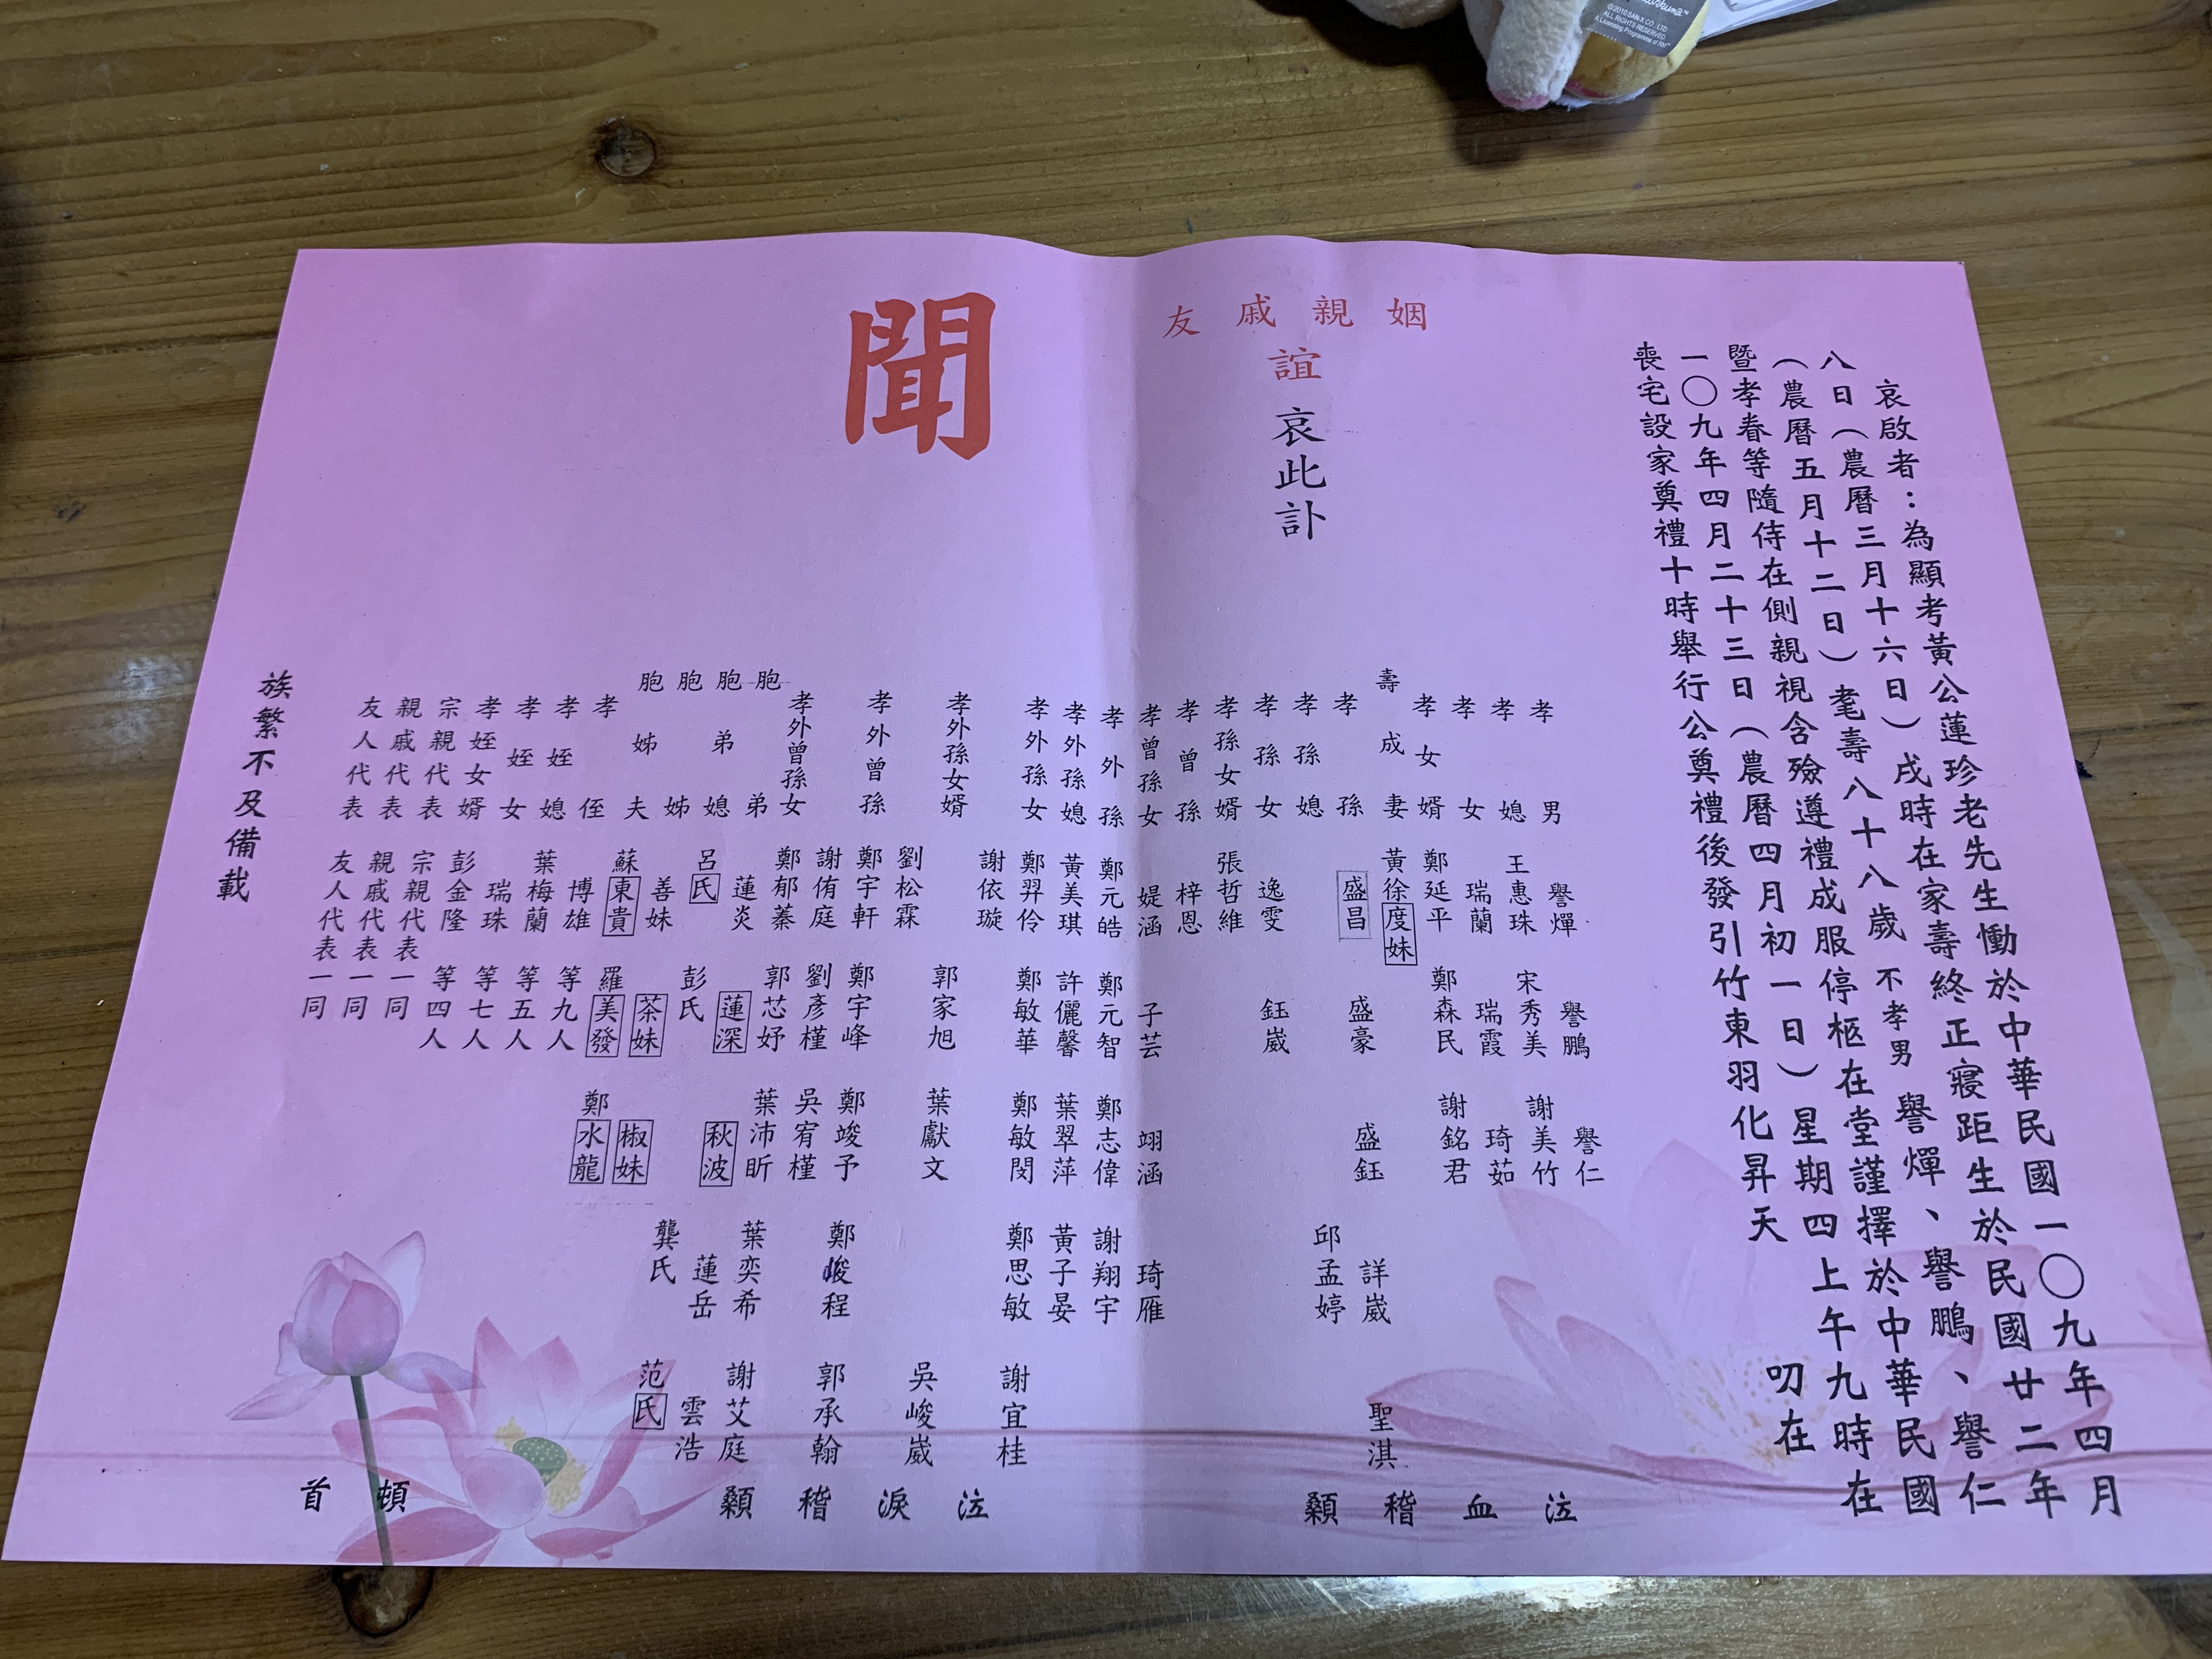 哀啟者：為顯考黃公蓮珍老先生慟於中華民國一〇九年四月
八日（農曆三月十六日）戌時在家壽終正寢距生於民國廿二年
（農曆五月十二日）耄壽八十八歲 不孝男 譽煇、譽鵬、譽仁
暨孝眷等隨侍在側親視含殮遵禮成服停柩在堂謹擇於中華民國
一〇九年四月二十三日（農曆四月初一日）星期四上午九時在
喪宅設家奠禮十時舉行公奠禮後發引竹東羽化昇天 叨在
姻親戚友
誼 哀此訃
聞
孝男 譽煇 譽鵬 譽仁
孝媳 王惠珠 宋秀美 謝美竹
孝女 瑞蘭 瑞霞 琦茹
孝女婿 鄭延平 鄭森民 謝銘君
壽成妻 黃徐度妹
孝孫 盛昌 盛豪 盛鈺 詳崴 聖淇
孝孫媳 邱孟婷
孝孫女 逸雯 鈺崴
孝孫女婿 張哲維
孝曾孫 梓恩
孝曾孫女 媞涵 子芸 翊涵 琦雁
孝外孫 鄭元皓 鄭元智 鄭志偉 謝翔宇
孝外孫媳 黃美琪 許儷馨 葉翠萍 黃子晏
孝外孫女 鄭羿伶 鄭敏華 鄭敏閔 鄭思敏 謝宜桂
謝依璇
孝外孫女婿 劉松霖 郭家旭 葉獻文 吳峻崴
孝外曾孫 鄭宇軒 鄭宇峰 鄭竣予 鄭峻程 郭承翰
謝侑庭 劉彥槿 吳宥槿
孝外曾孫女 鄭郁蓁 郭芯妤 葉沛昕 葉奕希 謝艾庭
胞弟 蓮炎 蓮深 秋波 蓮岳 雲浩
胞弟媳 呂氏 彭氏 龔氏 范氏
胞姊 善妹 茶妹 椒妹
胞姊夫 蘇東貴 羅美發 鄭水龍
孝侄 博雄 等九人
孝姪媳 葉梅蘭 等五人
孝姪女 瑞珠 等七人
孝姪女婿 彭金隆 等四人
宗親代表 宗親代表一同
親戚代表 親戚代表一同
友人代表 友人代表一同
泣血稽顙
泣淚稽顙
頓首
族繁不及備載
©2010 SAN-X CO., LTD.
ALL RIGHTS RESERVED.